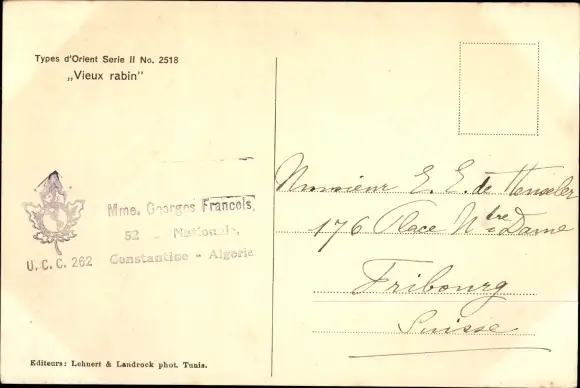 Types d'Orient Serie II No. 2518
„Vieux rabin"
Mme. Georges Francois,
52 - Nationale,
Constantine - Algerie
U.C.C. 262
Editeurs: Lehnert & Landrock phot. Tunis.
Monsieur E. E. de
176 Place Nbre Dame
Fribourg
Suisse